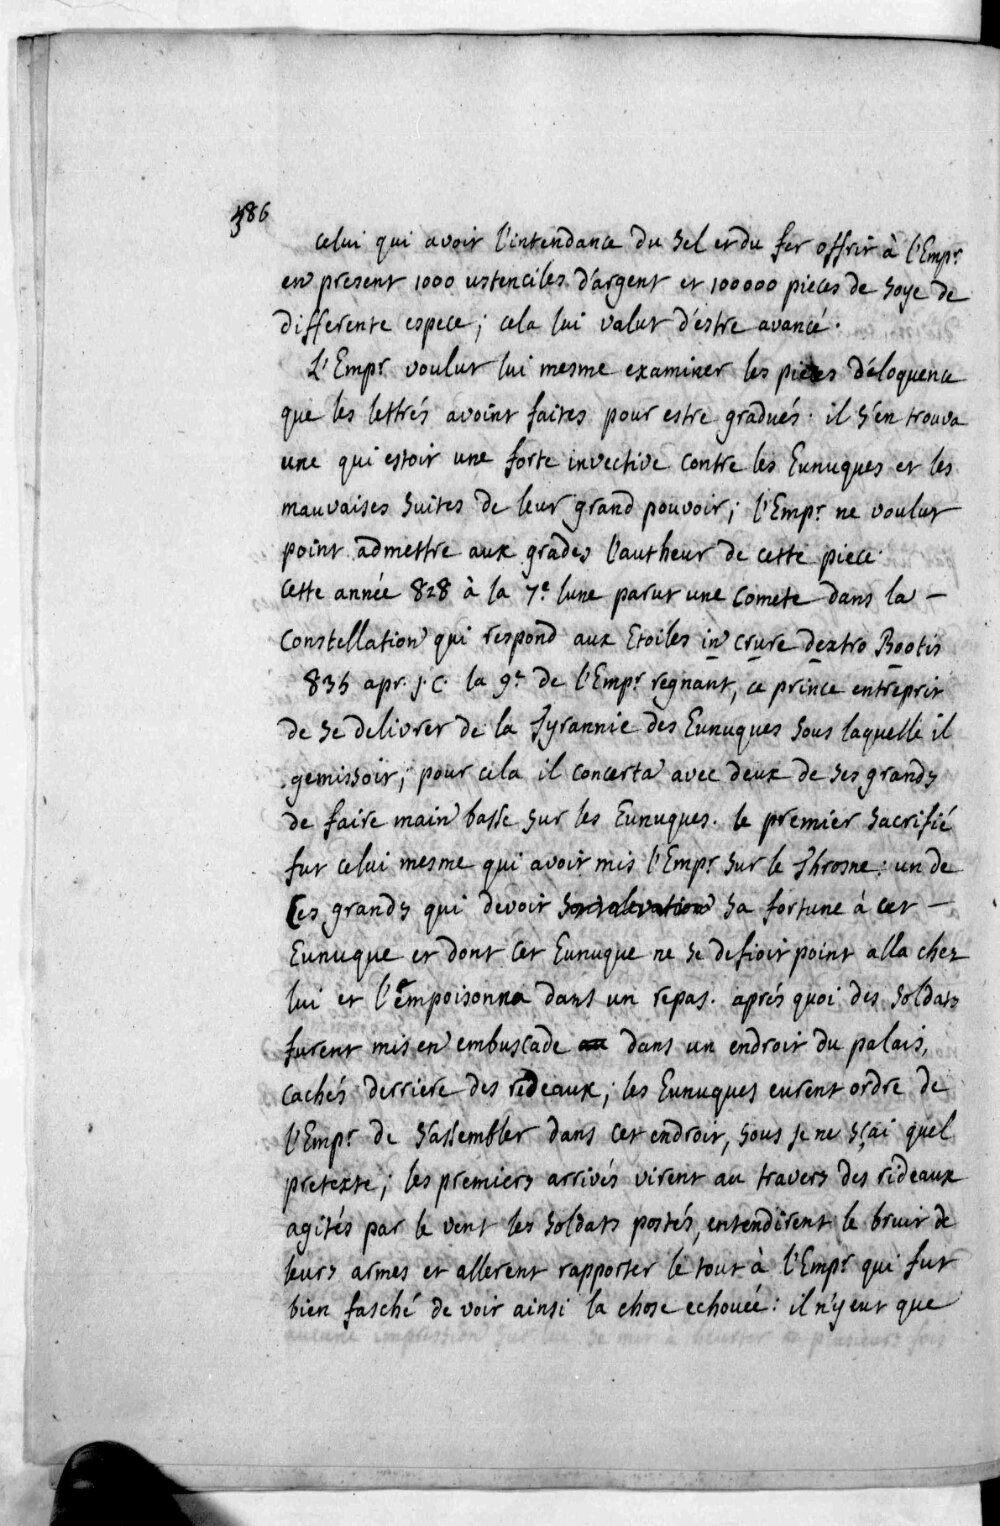 386
celui qui avoit l'intendance du sel et du fer offrit à l'Emp.r
en present 1000 ustenciles d'argent et 100000 pieces de soye de
differente espece; cela lui valut d'estre avancé.
L'Emp.r voulut lui mesme examiner les pieces d'éloquence
que les lettrés avoint faites pour estre gradués. il s'en trouva
une qui estoit une forte invective contre les Eunuques et les
mauvaises suites de leur grand pouvoir; l'Emp.r ne voulut
point admettre aux grades l'autheur de cette piece.
Cette année 828 à la 7.e lune parut une Comete dans la –
Constellation qui respond aux Etoiles in crure dextro Bootis
835 apr. J. C. la 9.e de l'Emp.r regnant, ce prince entreprit
de se delivrer de la Tyrannie des Eunuques sous laquelle il
gemissoit; pour cela il concerta avec deux de ses grands
de faire main basse sur les Eunuques. le premier sacrifié
fut celui mesme qui avoit mis l'Emp.r sur le Throsne: un de
Ces grands qui devoit son elevation sa fortune à cet –
Eunuque et dont cet Eunuque ne se defioit point alla chez
lui et l'empoisonna dans un repas. aprés quoi des soldats
furent mis en embuscade dans un endroit du palais,
cachés derriere des rideaux; les Eunuques eurent ordre de
l'Emp.r de s'assembler dans cet endroit, sous je ne sçai quel
pretexte; les premiers arrivés virent au travers des rideaux
agités par le vent les soldats postés, entendirent le bruit de
leurs armes et allerent rapporter le tout à l'Emp.r qui fut
bien fasché de voir ainsi la chose echouée: il n'y eut que